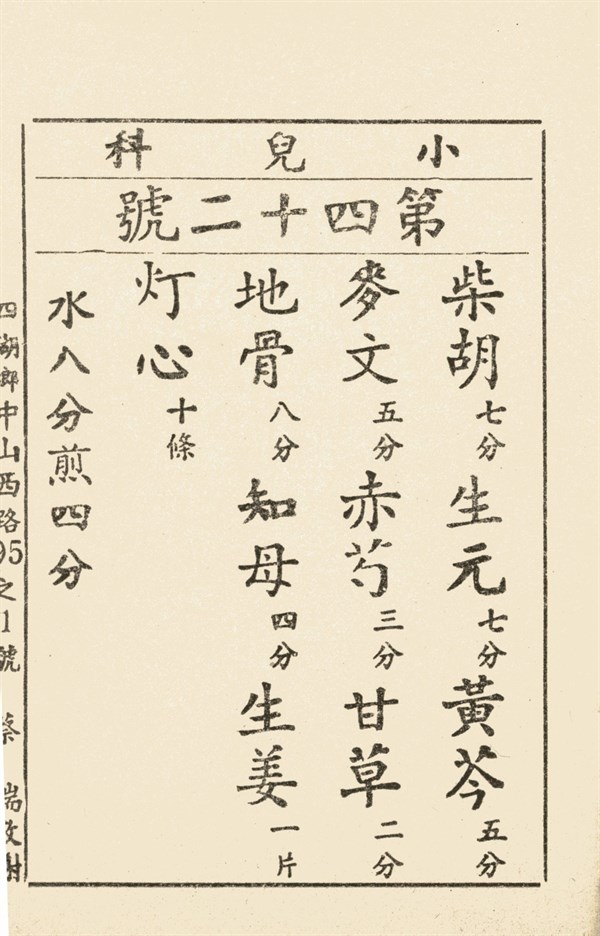 小兒科
第四十二號
柴胡七分生元七分黃芩五分
麥文五分赤芍三分甘草二分
地骨八分知母四分生姜一片
灯心十條
水八分煎四分
四湖鄉中山西路95之1號 蔡瑞敬謝